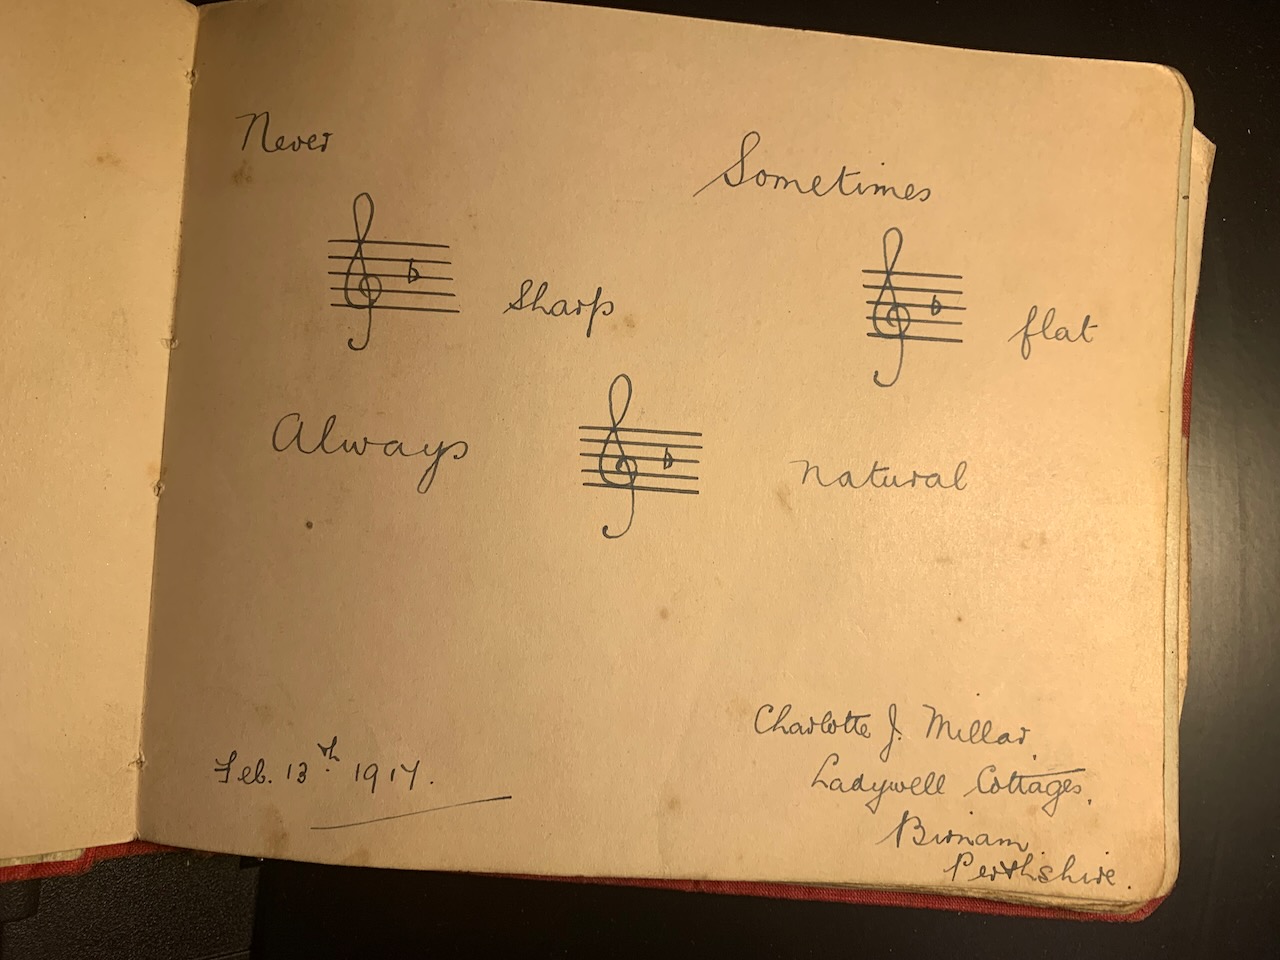 Never
Sometimes
♭ sharp
♭ flat
Always ♭ natural
Feb. 13th 1917.
Charlotte J. Millar,
Ladywell Cottages,
Birnam.
Perthshire.